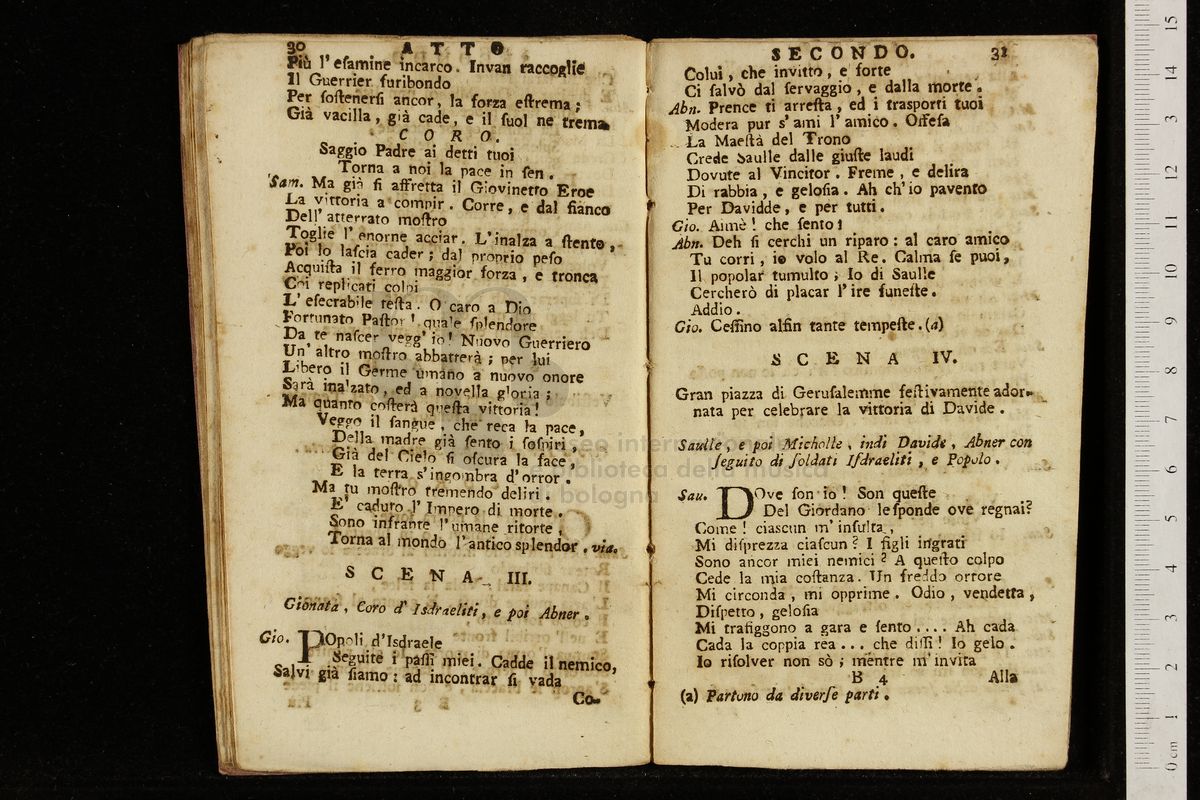 30 ATTO
Più l'eſamine incarco. Invan raccoglie
Il Guerrier furibondo
Per ſoſtenerſi ancor, la forza eſtrema;
Già vacilla, già cade, e il ſuol ne trema
CORO.
Saggio Padre ai detti tuoi
Torna a noi la pace in ſen.
Sam. Ma già ſi affretta il Giovinetto Eroe
La vittoria a compir. Corre, e dal fianco
Dell' atterrato moſtro
Toglie l'enorme acciar. L'inalza a ſtento,
Poi lo laſcia cader; dal proprio peſo
Acquiſta il ferro maggior forza, e tronca
Coi replicati colpi
L'eſecrabile teſta. O caro a Dio
Fortunato Paſtor! quale ſplendore
Da te naſcer vegg' io! Nuovo Guerriero
Un' altro moſtro abbatterà; per lui
Libero il Germe umano a nuovo onore
Sarà inalzato, ed a novella gloria;
Ma quanto coſterà queſta vittoria!
Veggo il ſangue, che reca la pace,
Della madre già ſento i ſoſpiri,
Già del Cielo ſi oſcura la face,
E la terra s'ingombra d'orror.
Ma tu moſtro tremendo deliri.
E' caduto l'Impero di morte.
Sono infrante l'umane ritorte,
Torna al mondo l'antico splendor. via.
SCENA III.
Gionata, Coro d' Isdraeliti, e poi Abner.
Gio. POpoli d'Isdraele
Seguite i paſſi miei. Cadde il nemico,
Salvi già ſiamo: ad incontrar ſi vada
Co-
SECONDO. 31
Colui, che invitto, e forte
Ci ſalvò dal ſervaggio, e dalla morte.
Abn. Prence ti arreſta, ed i traſporti tuoi
Modera pur s'ami l'amico. Offeſa
La Maeſtà del Trono
Crede Saulle dalle giuſte laudi
Dovute al Vincitor. Freme, e delira
Di rabbia, e geloſia. Ah ch'io pavento
Per Davidde, e per tutti.
Gio. Aimè! che ſento!
Abn. Deh ſi cerchi un riparo: al caro amico
Tu corri, io volo al Re. Calma ſe puoi,
Il popolar tumulto; Io di Saulle
Cercherò di placar l'ire funeſte.
Addio.
Gio. Ceſſino alfin tante tempeſte.(a)
SCENA IV.
Gran piazza di Geruſalemme feſtivamente ador-
nata per celebrare la vittoria di Davide.
Saulle, e poi Micholle, indi Davide, Abner con
ſeguito di ſoldati Iſdraeliti, e Popolo.
Sau. DOve ſon io! Son queſte
Del Giordano le ſponde ove regnai?
Come! ciaſcun m'inſulta,
Mi diſprezza ciaſcun? I figli ingrati
Sono ancor miei nemici? A queſto colpo
Cede la mia coſtanza. Un freddo orrore
Mi circonda, mi opprime. Odio, vendetta,
Diſpetto, geloſia
Mi trafiggono a gara e ſento.... Ah cada
Cada la coppia rea... che diſſi! Io gelo.
Io riſolver non sò; mentre m'invita
B 4 Alla
(a) Partono da diverſe parti.
museo internazionale
e biblioteca della musica
bologna